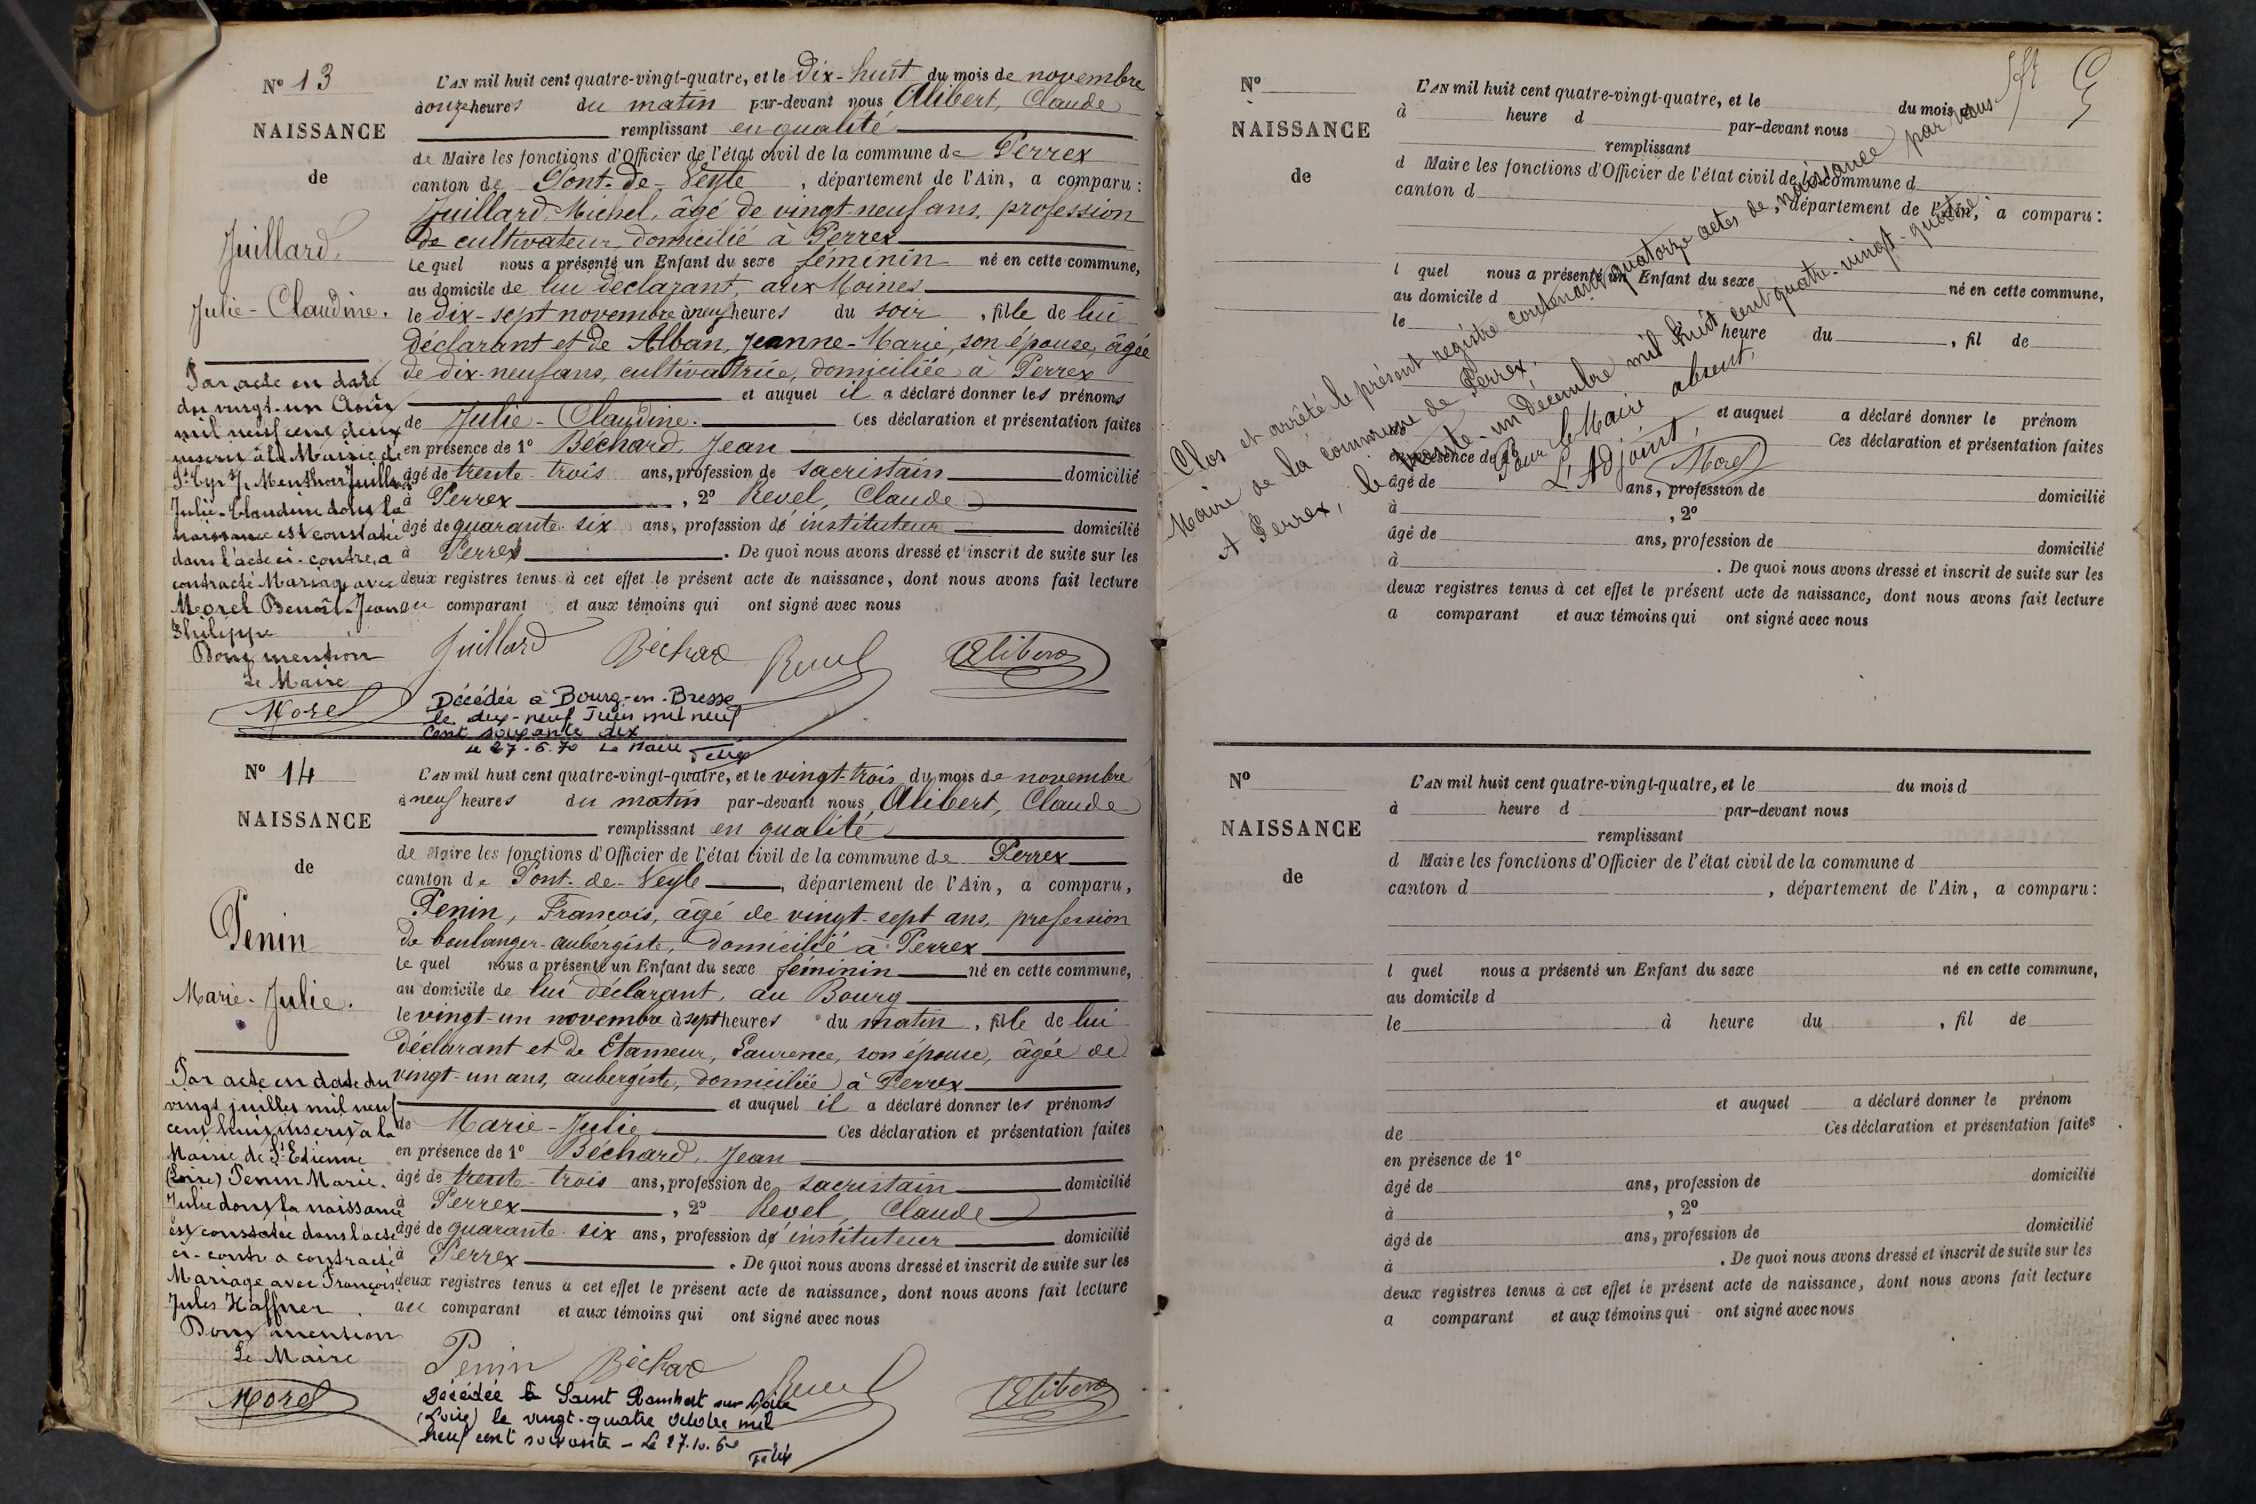 N° 13
NAISSANCE
de
Juillard
Julie-Claudine.
Par acte en date
du vingt-un Août
mil neuf cent deux
inscrit à la Mairie de
St Cyr s/ Menthon Juillard
Julie-Claudine dont la
naissance est constatée
dans l'acte ci-contre, a
contracté Mariage avec
Morel Benoît-Jean
Philippe
Dont mention
Le Maire
Morel
L'AN mil huit cent quatre-vingt-quatre, et le dix-huit du mois de novembre
à onze heures du matin par-devant nous Alibert, Claude
remplissant en qualité
de Maire les fonctions d'Officier de l'état civil de la commune de Perrex
canton de Pont-de-Veyle, département de l'Ain, a comparu :
Juillard Michel, âgé de vingt-neuf ans, profession
de cultivateur, domicilié à Perrex
le quel nous a présenté un Enfant du sexe féminin né en cette commune,
au domicile de lui déclarant, aux Moines
le dix-sept novembre à neuf heures du soir, fille de lui
déclarant et de Alban, Jeanne-Marie, son épouse, âgée
de dix-neuf ans, cultivatrice, domiciliée à Perrex
et auquel il a déclaré donner les prénoms
de Julie-Claudine. Ces déclaration et présentation faites
en présence de 1° Béchard, Jean
âgé de trente-trois ans, profession de sacristain domicilié
à Perrex, 2° Revel, Claude
âgé de quarante-six ans, profession d'instituteur domicilié
à Perrex. De quoi nous avons dressé et inscrit de suite sur les
deux registres tenus à cet effet le présent acte de naissance, dont nous avons fait lecture
au comparant et aux témoins qui ont signé avec nous
Juillard Béchard Revel Alibert
Décédée à Bourg-en-Bresse
le dix-neuf Juin mil neuf
cent soixante dix
le 27-6-70 Le Maire
N° 14
NAISSANCE
de
Penin
Marie-Julie.
Par acte en date du
vingt juillet mil neuf
cent huit inscrit à la
Mairie de St-Etienne
(Loire) Penin Marie-
Julie dont la naissance
est constatée dans l'acte
ci-contre a contracté
Mariage avec François
Jules Haffner.
Dont mention
Le Maire
Morel
L'AN mil huit cent quatre-vingt-quatre, et le vingt-trois du mois de novembre
à neuf heures du matin par-devant nous Alibert, Claude
remplissant en qualité
de Maire les fonctions d'Officier de l'état civil de la commune de Perrex
canton de Pont-de-Veyle, département de l'Ain, a comparu,
Penin, François, âgé de vingt-sept ans, profession
de boulanger-aubergiste, domicilié à Perrex
le quel nous a présenté un Enfant du sexe féminin né en cette commune,
au domicile de lui déclarant, au Bourg
le vingt-un novembre à sept heures du matin, fille de lui
déclarant et de Etameur, Laurence, son épouse, âgée de
vingt-un ans, aubergiste, domiciliée à Perrex
et auquel il a déclaré donner les prénoms
de Marie-Julie Ces déclaration et présentation faites
en présence de 1° Béchard, Jean
âgé de trente-trois ans, profession de sacristain domicilié
à Perrex, 2° Revel, Claude
âgé de quarante-six ans, profession d'instituteur domicilié
à Perrex. De quoi nous avons dressé et inscrit de suite sur les
deux registres tenus à cet effet le présent acte de naissance, dont nous avons fait lecture
au comparant et aux témoins qui ont signé avec nous
Penin Béchard Revel Alibert
Décédée à Saint Rambert sur Loire
(Loire) le vingt-quatre octobre mil
neuf cent soixante - Le 27.10.60
N°
NAISSANCE
de
L'AN mil huit cent quatre-vingt-quatre, et le du mois d
à heure d par-devant nous
remplissant
d Maire les fonctions d'Officier de l'état civil de la commune d
canton d , département de l'Ain, a comparu :
l quel nous a présenté un Enfant du sexe né en cette commune,
au domicile d
le à heure du , fil de
et auquel a déclaré donner le prénom
de Ces déclaration et présentation faites
en présence de 1°
âgé de ans, profession de domicilié
à , 2°
âgé de ans, profession de domicilié
à . De quoi nous avons dressé et inscrit de suite sur les
deux registres tenus à cet effet le présent acte de naissance, dont nous avons fait lecture
a comparant et aux témoins qui ont signé avec nous
Clos et arrêté le présent registre contenant quatorze actes de naissance par nous
Maire de la commune de Perrex.
A Perrex, le trente-un Décembre mil huit cent quatre-vingt-quatre.
Pour le Maire absent,
L'Adjoint,
Morel
N°
NAISSANCE
de
L'AN mil huit cent quatre-vingt-quatre, et le du mois d
à heure d par-devant nous
remplissant
d Maire les fonctions d'Officier de l'état civil de la commune d
canton d , département de l'Ain, a comparu :
l quel nous a présenté un Enfant du sexe né en cette commune,
au domicile d
le à heure du , fil de
et auquel a déclaré donner le prénom
de Ces déclaration et présentation faites
en présence de 1°
âgé de ans, profession de domicilié
à , 2°
âgé de ans, profession de domicilié
à . De quoi nous avons dressé et inscrit de suite sur les
deux registres tenus à cet effet le présent acte de naissance, dont nous avons fait lecture
a comparant et aux témoins qui ont signé avec nous